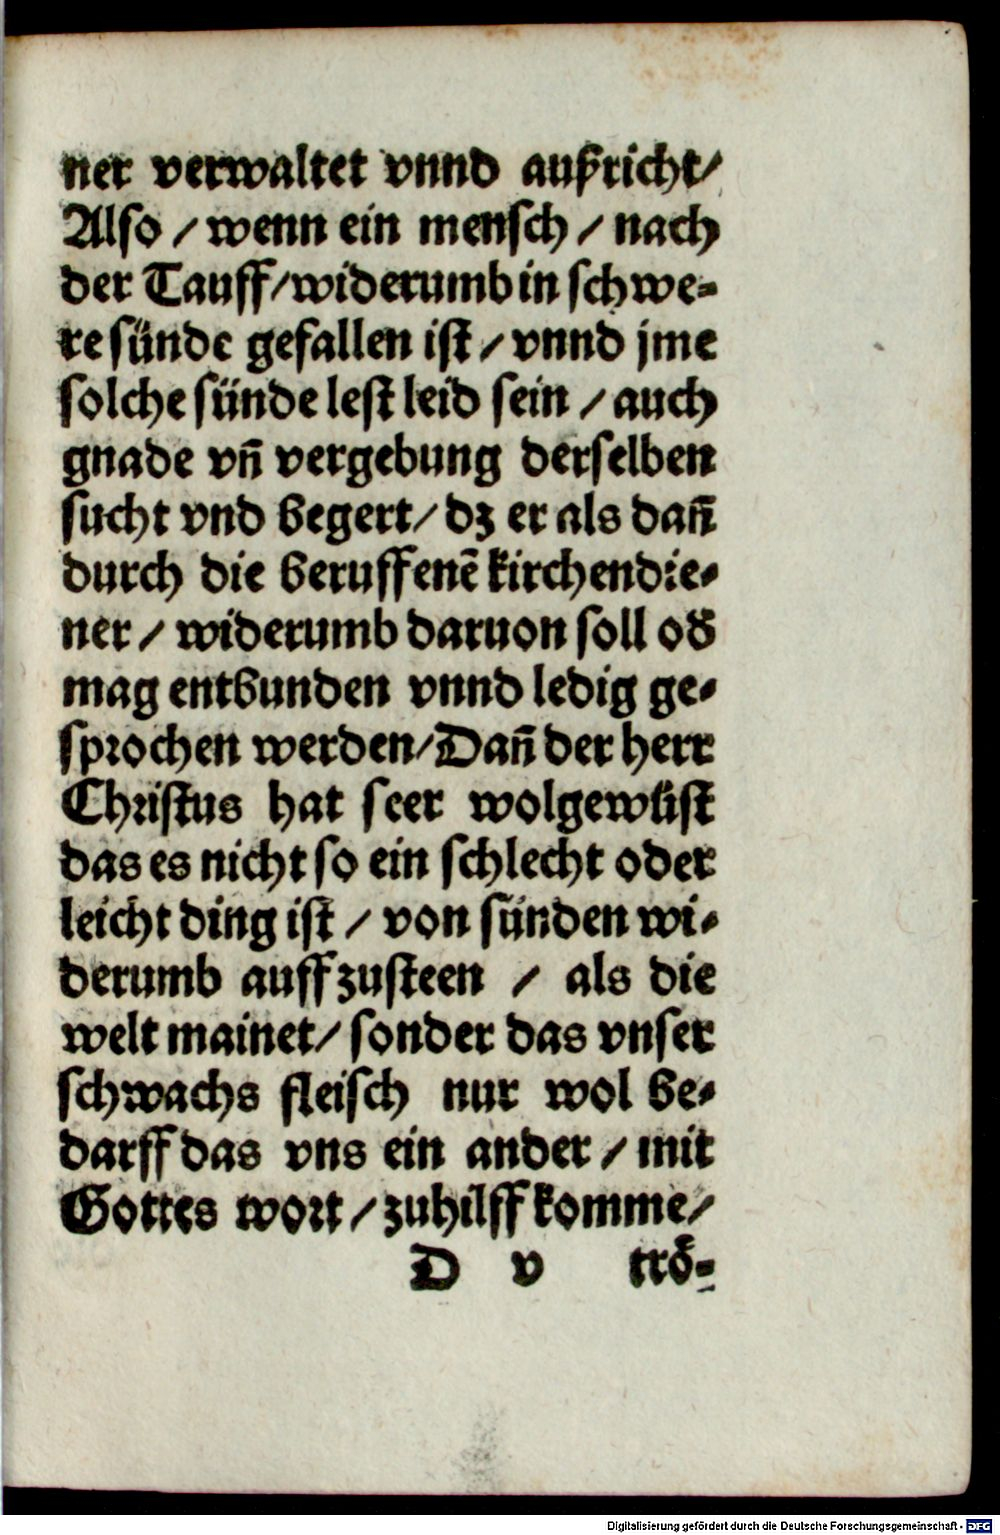 ner verwaltet vnnd außricht/
Also / wenn ein mensch / nach
der Tauff/widerumb in schwe-
re sünde gefallen ist / vnnd jme
solche sünde lest leid sein / auch
gnade vñ vergebung derselben
sucht vnd begert/ dz er als dañ
durch die beruffenē kirchendie-
ner / widerumb daruon soll od'
mag entbunden vnnd ledig ge-
sprochen werden/Dañ der herr
Christus hat seer wolgewüst
das es nicht so ein schlecht oder
leicht ding ist / von sünden wi-
derumb auffzusteen / als die
welt mainet/ sonder das vnser
schwachs fleisch nur wol be-
darff das vns ein ander / mit
Gottes wort / zuhilff komme/
D v trö-
Digitalisierung gefördert durch die Deutsche Forschungsgemeinschaft - DFG